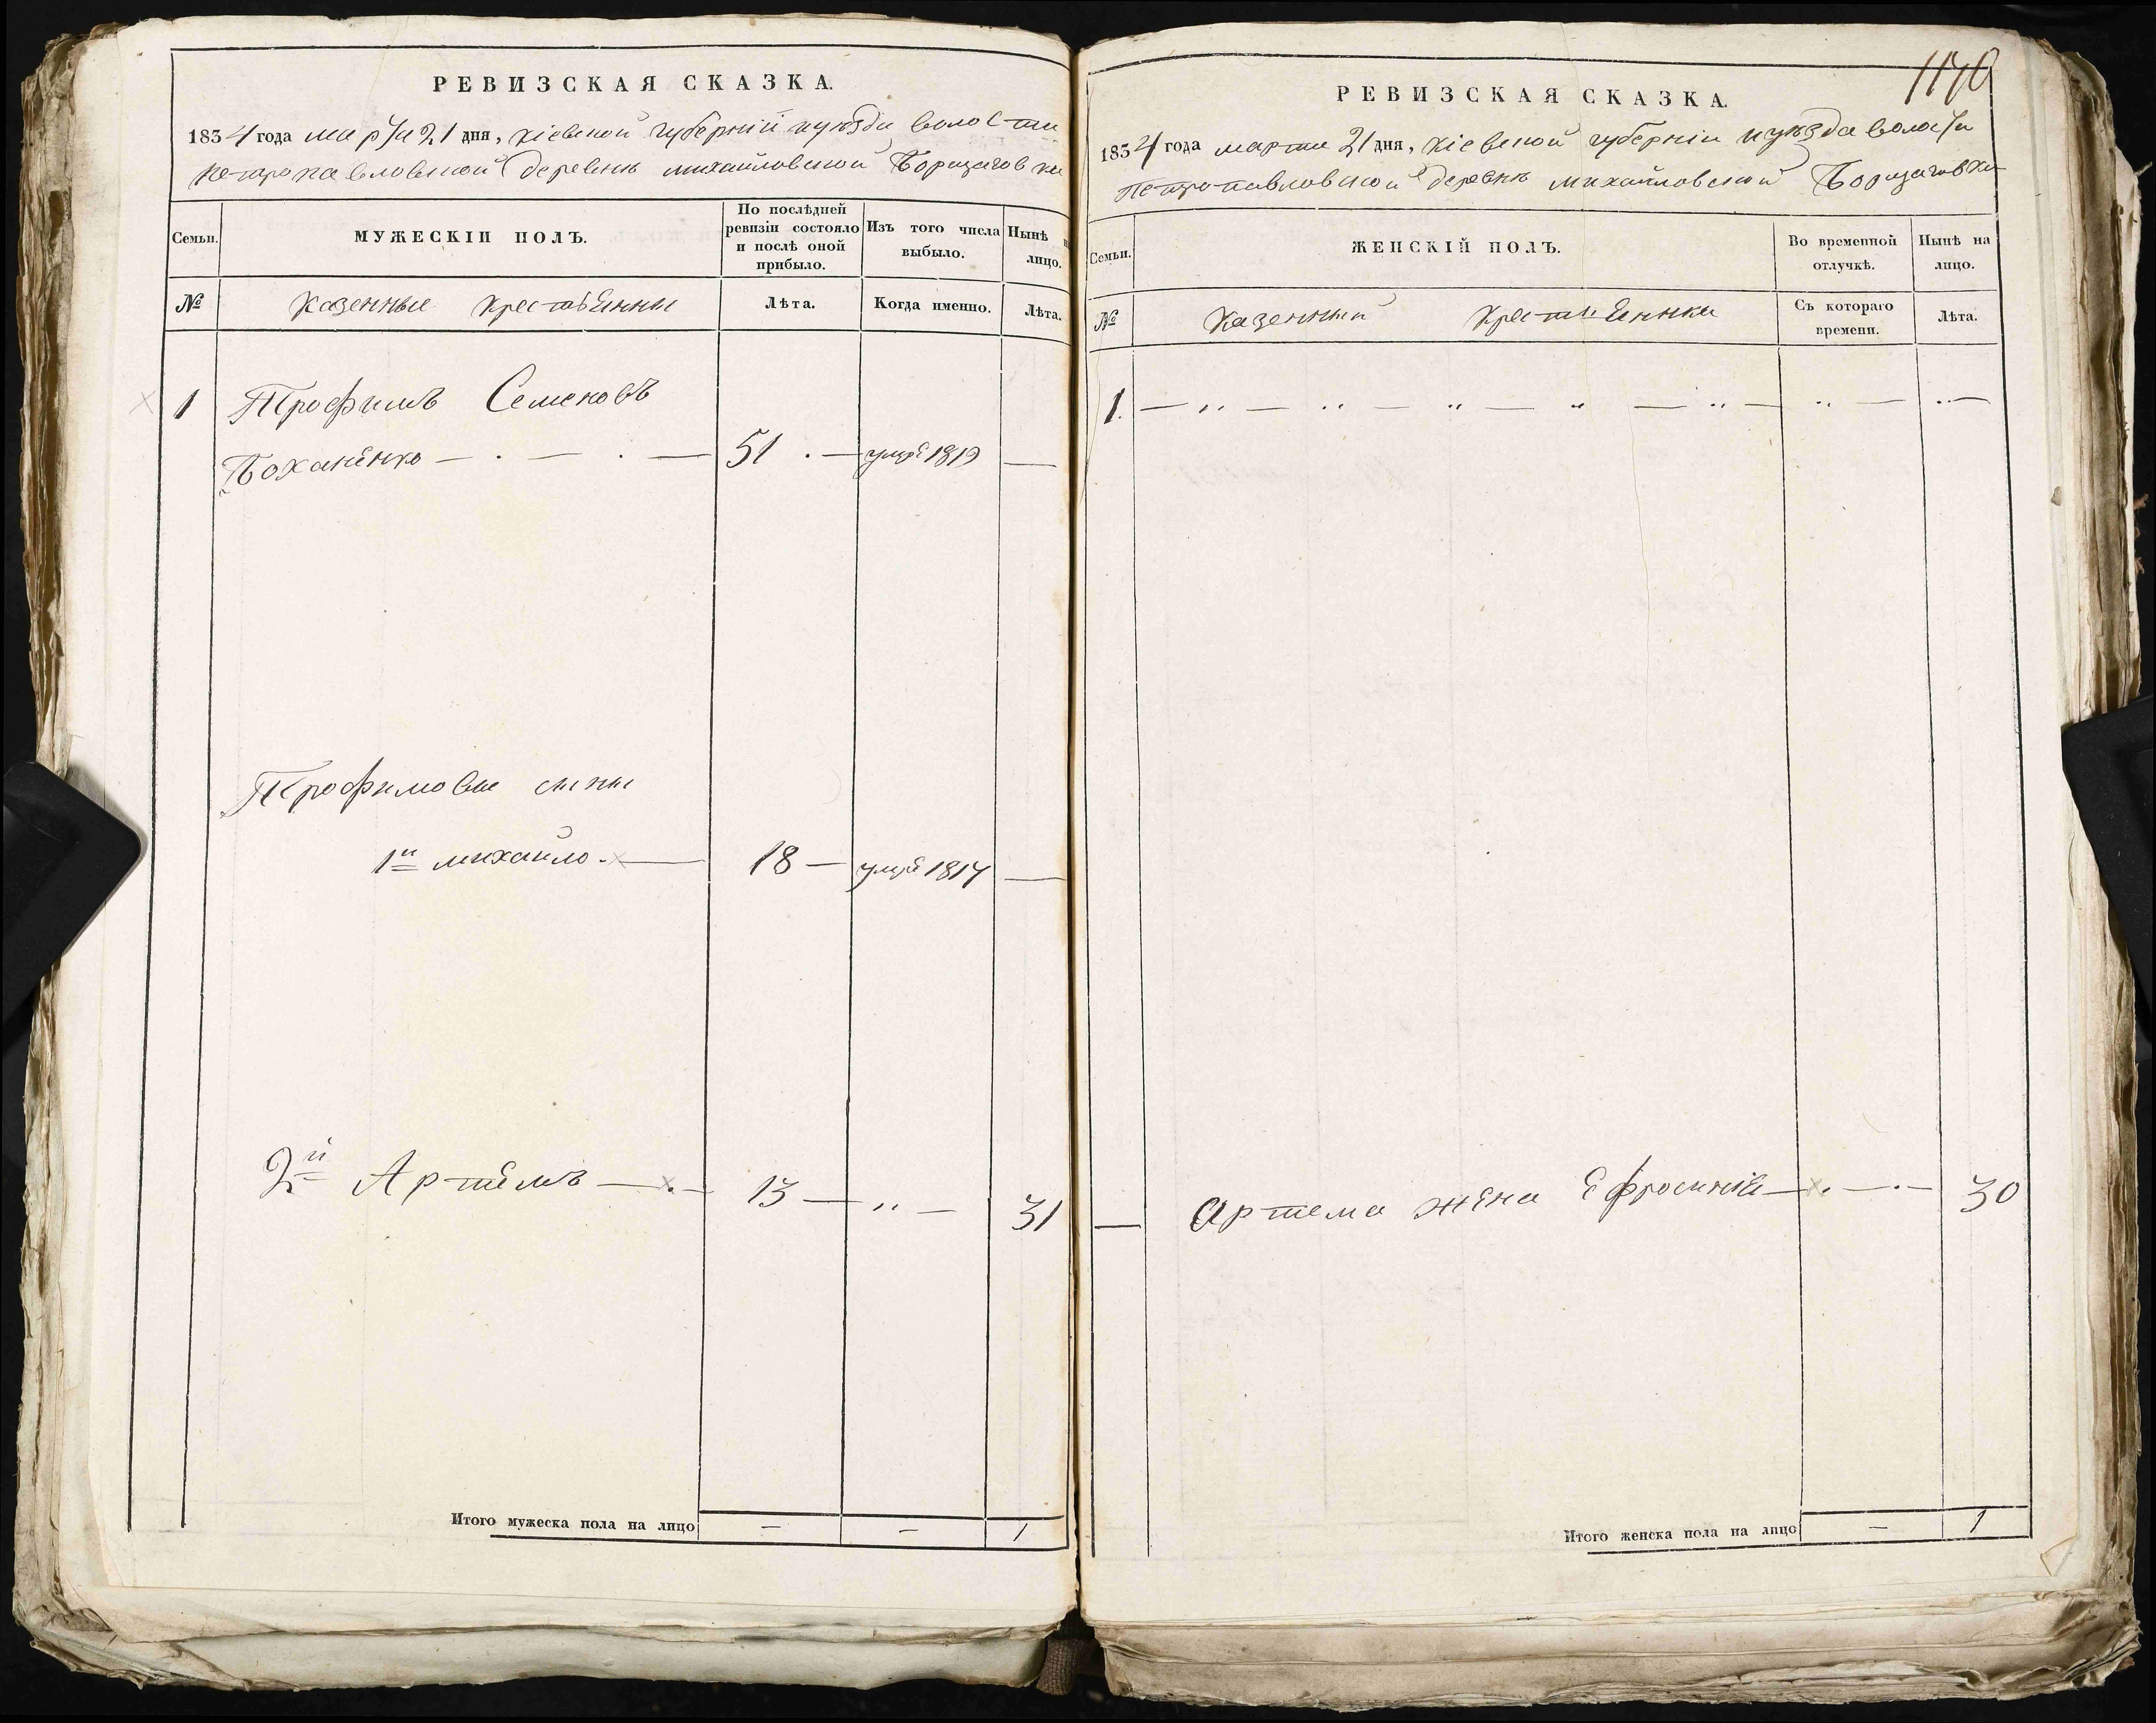 РЕВИЗСКАЯ СКАЗКА.
1834 года марта 21 дня, Кіевской губерніи и уѣзда волости
Петропавловской деревнѣ Михайловской Борщаговки
Семьи.
МУЖЕСКІЙ ПОЛЪ.
По послѣдней ревизіи состояло и послѣ оной прибыло.
Изъ того числа выбыло.
Нынѣ на лицо.
№
Казенные крестьянны
Лѣта.
Когда именно.
Лѣта.
1 Трофимъ Семеновъ
Боханенко — 51 — умре 1819 —
Трофимовы сыны
1й Михайло — 18 — умре 1817 —
2й Артемъ — 13 — „ — 31
Итого мужеска пола на лицо — — 1
1170
РЕВИЗСКАЯ СКАЗКА.
1834 года марта 21 дня, Кіевской губерніи и уѣзда волости
Петропавловской деревнѣ Михайловской Борщаговки
Семьи.
ЖЕНСКІЙ ПОЛЪ.
Во временной отлучкѣ.
Нынѣ на лицо.
№
Казенныи крестьеннки
Съ котораго времени.
Лѣта.
1. — „ — „ — „ — „ — „ — „ — „ —
— Артема жена Ефросиніа — „ — 30
Итого женска пола на лицо — 1